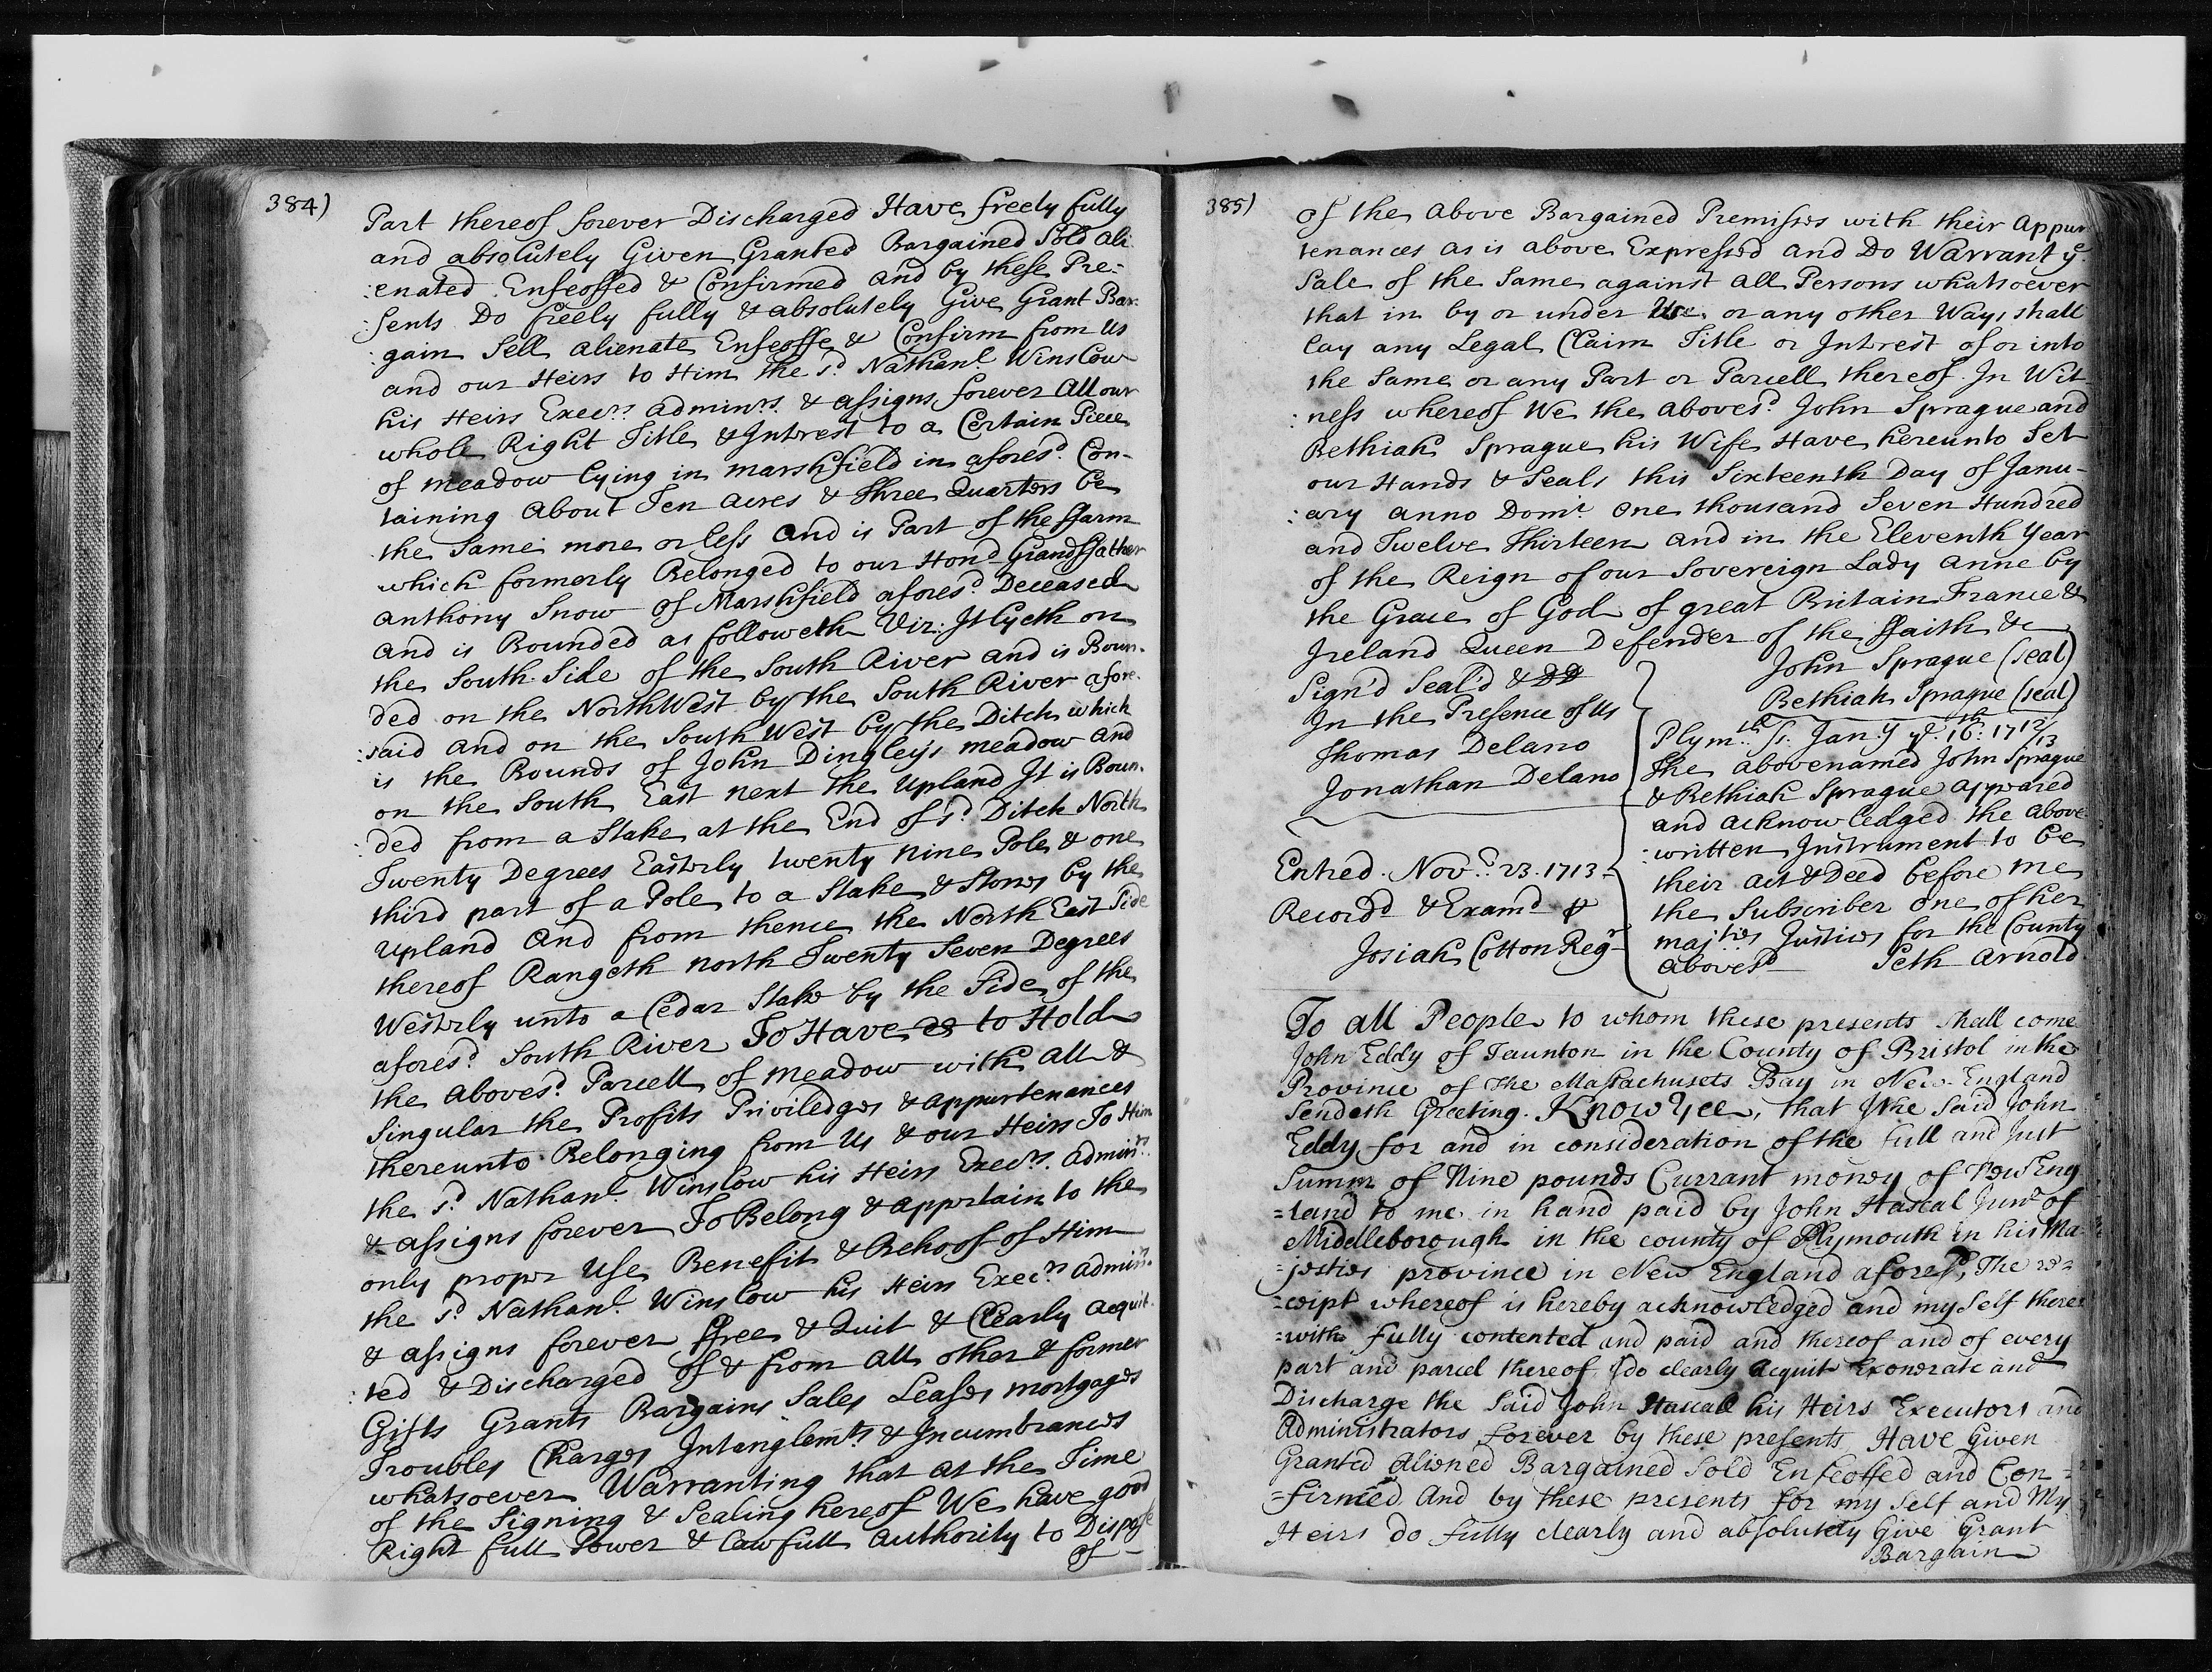 384)
Part thereof forever Discharged Have freely fully
and absolutely Given Granted Bargained Sold Ali-
:enated Enfeoffed & Confirmed and by these Pre-
:sents Do freely fully & absolutely Give Grant Bar-
:gain Sell alienate Enfeoffe & Confirm from us
and our Heirs to Him the sd Nathanl. Winslow
his Heirs Execrs. adminrs. & assigns forever All our
whole Right Title & Interest to a Certain Piece
of meadow lying in marshfield in aforesd. Con-
taining About Ten Acres & three Quarters be
the Same more or less and is Part of the ffarm
which formerly Belonged to our Hond Grandffather
Anthony Snow of Marshfield aforesd. Deceased
and is Bounded as followeth Viz: It lyeth on
the South Side of the South River and is Boun-
ded on the NorthWest by the South River afore-
:said and on the South West by the Ditch which
is the Bounds of John Dingleys meadow and
on the South East next the Upland It is Boun-
:ded from a Stake at the End of sd. Ditch North
Twenty Degrees Easterly twenty nine Pole & one
third part of a Pole to a Stake & Stones by the
upland and from thence the North East Side
thereof Rangeth north Twenty Seven Degrees
Westerly unto a Cedar Stake by the Side of the
aforesd. South River To Have & to Hold
the abovesd. Parcell of meadow with all &
Singular the Profits Priviledges & appurtenances
thereunto Belonging from Us & our Heirs To Him
the sd. Nathanl. Winslow his Heirs Execrs. Adminrs.
& assigns forever To Belong & appertain to the
only proper Use Benefit & Behoof of Him
the sd. Nathanl. Winslow his Heirs Execrs. Adminrs.
& assigns forever ffree & Quit & Clearly acquit-
:ted & Discharged of & from all other & former
Gifts Grants Bargains Sales Leases mortgages
Troubles Charges Intanglemts. & Incumbrances
whatsoever Warranting that at the Time
of the Signing & Sealing hereof We have good
Right full Power & lawfull authority to Dispose
of
385)
of the above Bargained Premisses with their appur
tenances as is above Expressed and Do Warrant ye
Sale of the Same against all Persons whatsoever
that in by or under Us or any other Ways shall
lay any Legal Claim Title or Interest of or into
the Same or any Part or Parcell thereof In Wit-
:ness whereof We the abovesd. John Sprague and
Bethiah Sprague his Wife Have hereunto Set
our Hands & Seals this Sixteenth Day of Janu-
:ary anno Domi: One thousand Seven Hundred
and Twelve Thirteen and in the Eleventh Year
of the Reign of our Sovereign Lady Anne by
the Grace of God of great Britain France &
Ireland Queen Defender of the ffaith &c
John Sprague (seal)
Bethiah Sprague (seal)
Sign'd Seal'd & DD
In the Presence of us
Thomas Delano
Jonathan Delano
Entred. Novr. 23. 1713.
Recordd & Examd
Josiah Cotton Regr
Plymth. ss. Jany ye. 16th: 1712/13
The abovenamed John Sprague
& Bethiah Sprague appeared
and acknowledged the above
:written Instrument to be
their act & Deed before me
the Subscriber one of her
majties Justices for the County
abovesd Seth Arnold
To all People to whom these presents shall come
John Eddy of Taunton in the County of Bristol in the
Province of the Massachusets Bay in New England
Sendeth Greeting. Know Yee, that I the Said John
Eddy for and in consideration of the full and Just
Summ of Nine pounds Currant money of New Eng
=land to me in hand paid by John Hascal Junr of
Middleborough in the county of Plymouth in his Ma
=jesties province in New England aforesd, The re=
=ceipt whereof is hereby acknowledged and my Self there
=with fully contented and paid and thereof and of every
part and parcel thereof I do clearly Acquit Exonerate and
Discharge the Said John Hascall his Heirs Executors and
Administrators forever by these presents Have Given
Granted Aliened Bargained Sold Enfeoffed and Con=
=firmed, And by these presents for my Self and My
Heirs do fully clearly and absolutely Give Grant
Bargain